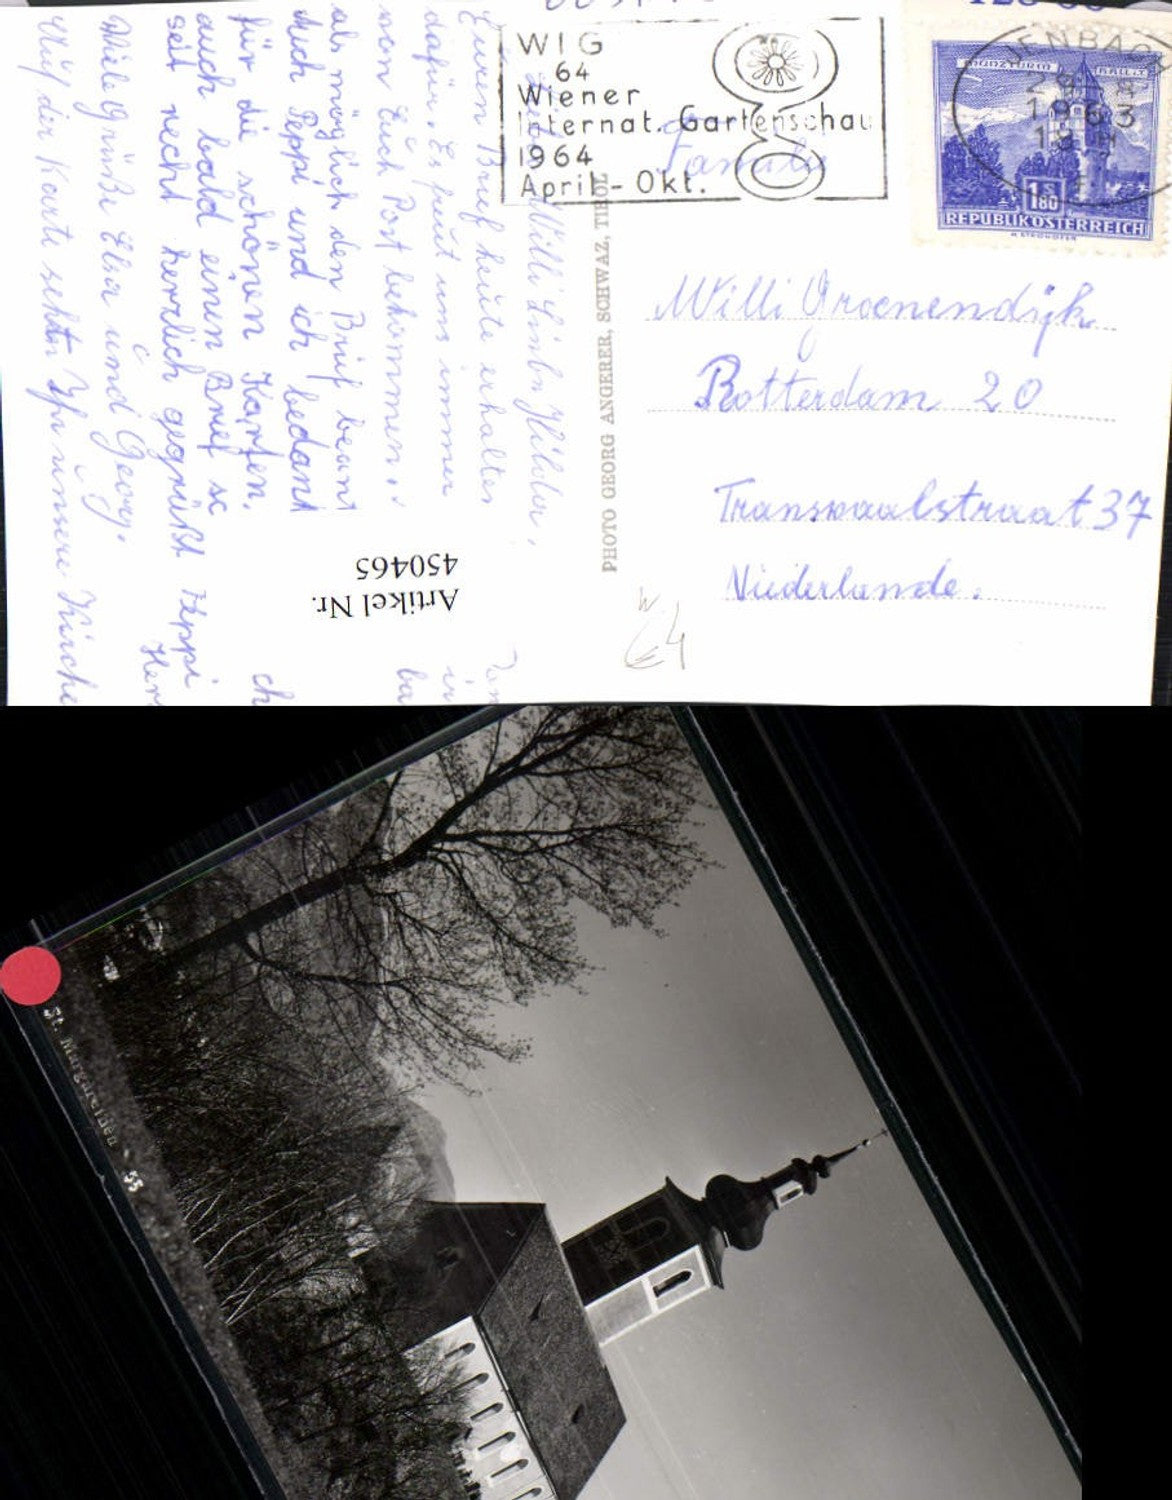 WIG
64
Wiener
Internat. Gartenschau
1964
April - Okt.
JENBACH
1963
REPUBLIK ÖSTERREICH
1 S 80
Familie
Willi Groenendijk
Rotterdam 20
Transvaalstraat 37
Niederlande.
PHOTO GEORG ANGERER, SCHWAZ, TIROL
Euren Brief heute erhalten
dafür. Es freut uns immer
von Euch Post bekommen.
als möglich den Brief
Auch Peppi und ich
für die schönen Karten.
auch bald einen Brief
seit recht herzlich gegrüßt Peppi
Viele Grüße Elsa und Georg.
Auf der Karte seht Ihr unsere Kirche
Artikel Nr.
450465
St. Margarethen